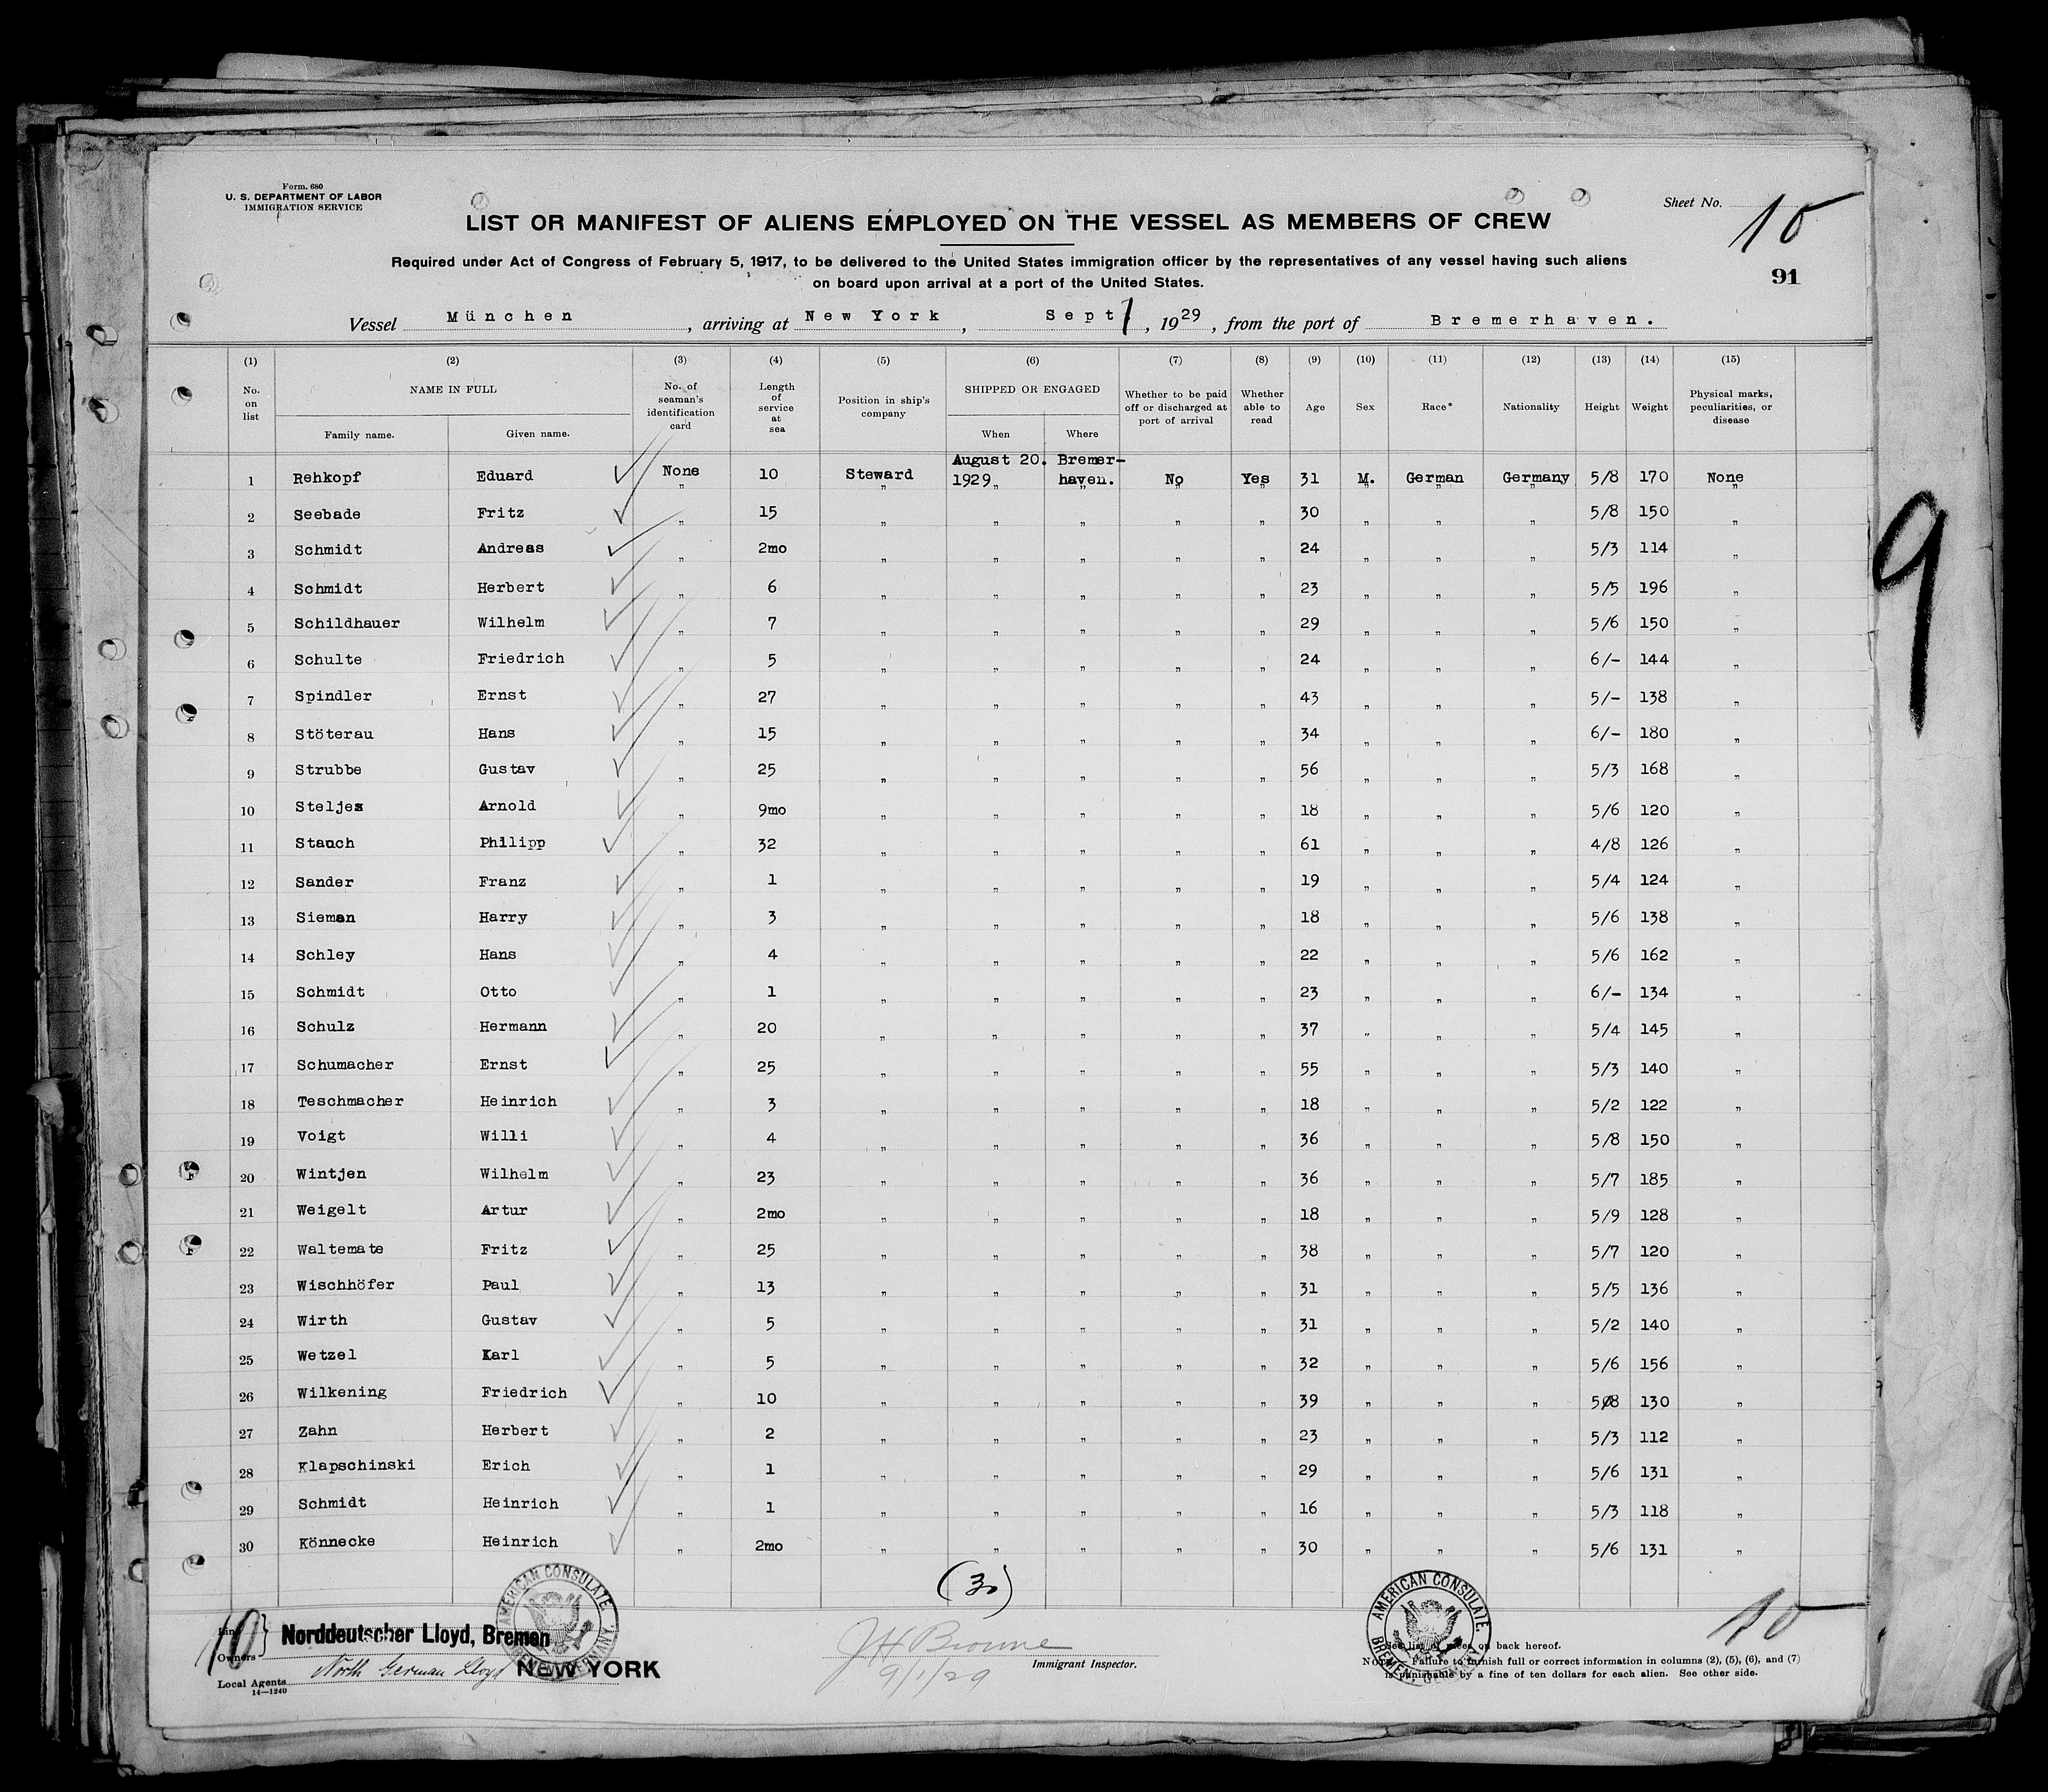 Form. 680
U. S. DEPARTMENT OF LABOR
IMMIGRATION SERVICE
Sheet No. 10
LIST OR MANIFEST OF ALIENS EMPLOYED ON THE VESSEL AS MEMBERS OF CREW
Required under Act of Congress of February 5, 1917, to be delivered to the United States immigration officer by the representatives of any vessel having such aliens
on board upon arrival at a port of the United States.
91
Vessel München, arriving at New York, Sept 1, 1929, from the port of Bremerhaven.
(1) (2) (3) (4) (5) (6) (7) (8) (9) (10) (11) (12) (13) (14) (15)
No. on list NAME IN FULL Family name. Given name. No. of seaman's identification card Length of service at sea Position in ship's company SHIPPED OR ENGAGED When Where Whether to be paid off or discharged at port of arrival Whether able to read Age Sex Race* Nationality Height Weight Physical marks, peculiarities, or disease
1 Rehkopf Eduard None 10 Steward August 20. 1929 Bremerhaven. No Yes 31 M. German Germany 5/8 170 None
2 Seebade Fritz " 15 " " " " " 30 " " " 5/8 150 "
3 Schmidt Andreas " 2mo " " " " " 24 " " " 5/3 114 "
4 Schmidt Herbert " 6 " " " " " 23 " " " 5/5 196 "
5 Schildhauer Wilhelm " 7 " " " " " 29 " " " 5/6 150 "
6 Schulte Friedrich " 5 " " " " " 24 " " " 6/- 144 "
7 Spindler Ernst " 27 " " " " " 43 " " " 5/- 138 "
8 Stöterau Hans " 15 " " " " " 34 " " " 6/- 180 "
9 Strubbe Gustav " 25 " " " " " 56 " " " 5/3 168 "
10 Steljes Arnold " 9mo " " " " " 18 " " " 5/6 120 "
11 Stauch Philipp " 32 " " " " " 61 " " " 4/8 126 "
12 Sander Franz " 1 " " " " " 19 " " " 5/4 124 "
13 Sieman Harry " 3 " " " " " 18 " " " 5/6 138 "
14 Schley Hans " 4 " " " " " 22 " " " 5/6 162 "
15 Schmidt Otto " 1 " " " " " 23 " " " 6/- 134 "
16 Schulz Hermann " 20 " " " " " 37 " " " 5/4 145 "
17 Schumacher Ernst " 25 " " " " " 55 " " " 5/3 140 "
18 Teschmacher Heinrich " 3 " " " " " 18 " " " 5/2 122 "
19 Voigt Willi " 4 " " " " " 36 " " " 5/8 150 "
20 Wintjen Wilhelm " 23 " " " " " 36 " " " 5/7 185 "
21 Weigelt Artur " 2mo " " " " " 18 " " " 5/9 128 "
22 Waltemate Fritz " 25 " " " " " 38 " " " 5/7 120 "
23 Wischhöfer Paul " 13 " " " " " 31 " " " 5/5 136 "
24 Wirth Gustav " 5 " " " " " 31 " " " 5/2 140 "
25 Wetzel Karl " 5 " " " " " 32 " " " 5/6 156 "
26 Wilkening Friedrich " 10 " " " " " 39 " " " 5/8 130 "
27 Zahn Herbert " 2 " " " " " 23 " " " 5/3 112 "
28 Klapschinski Erich " 1 " " " " " 29 " " " 5/6 131 "
29 Schmidt Heinrich " 1 " " " " " 16 " " " 5/3 118 "
30 Könnecke Heinrich " 2mo " " " " " 30 " " " 5/6 131 "
9
(30)
10
10
Owners Norddeutscher Lloyd, Bremen
Local Agents North German Lloyd NEW YORK
14—1240
AMERICAN CONSULATE
BREMEN, GERMANY
JH Browne
9/1/29
Immigrant Inspector.
AMERICAN CONSULATE
BREMEN, GERMANY
See list of races on back hereof.
Note.—Failure to furnish full or correct information in columns (2), (5), (6), and (7)
is punishable by a fine of ten dollars for each alien. See other side.